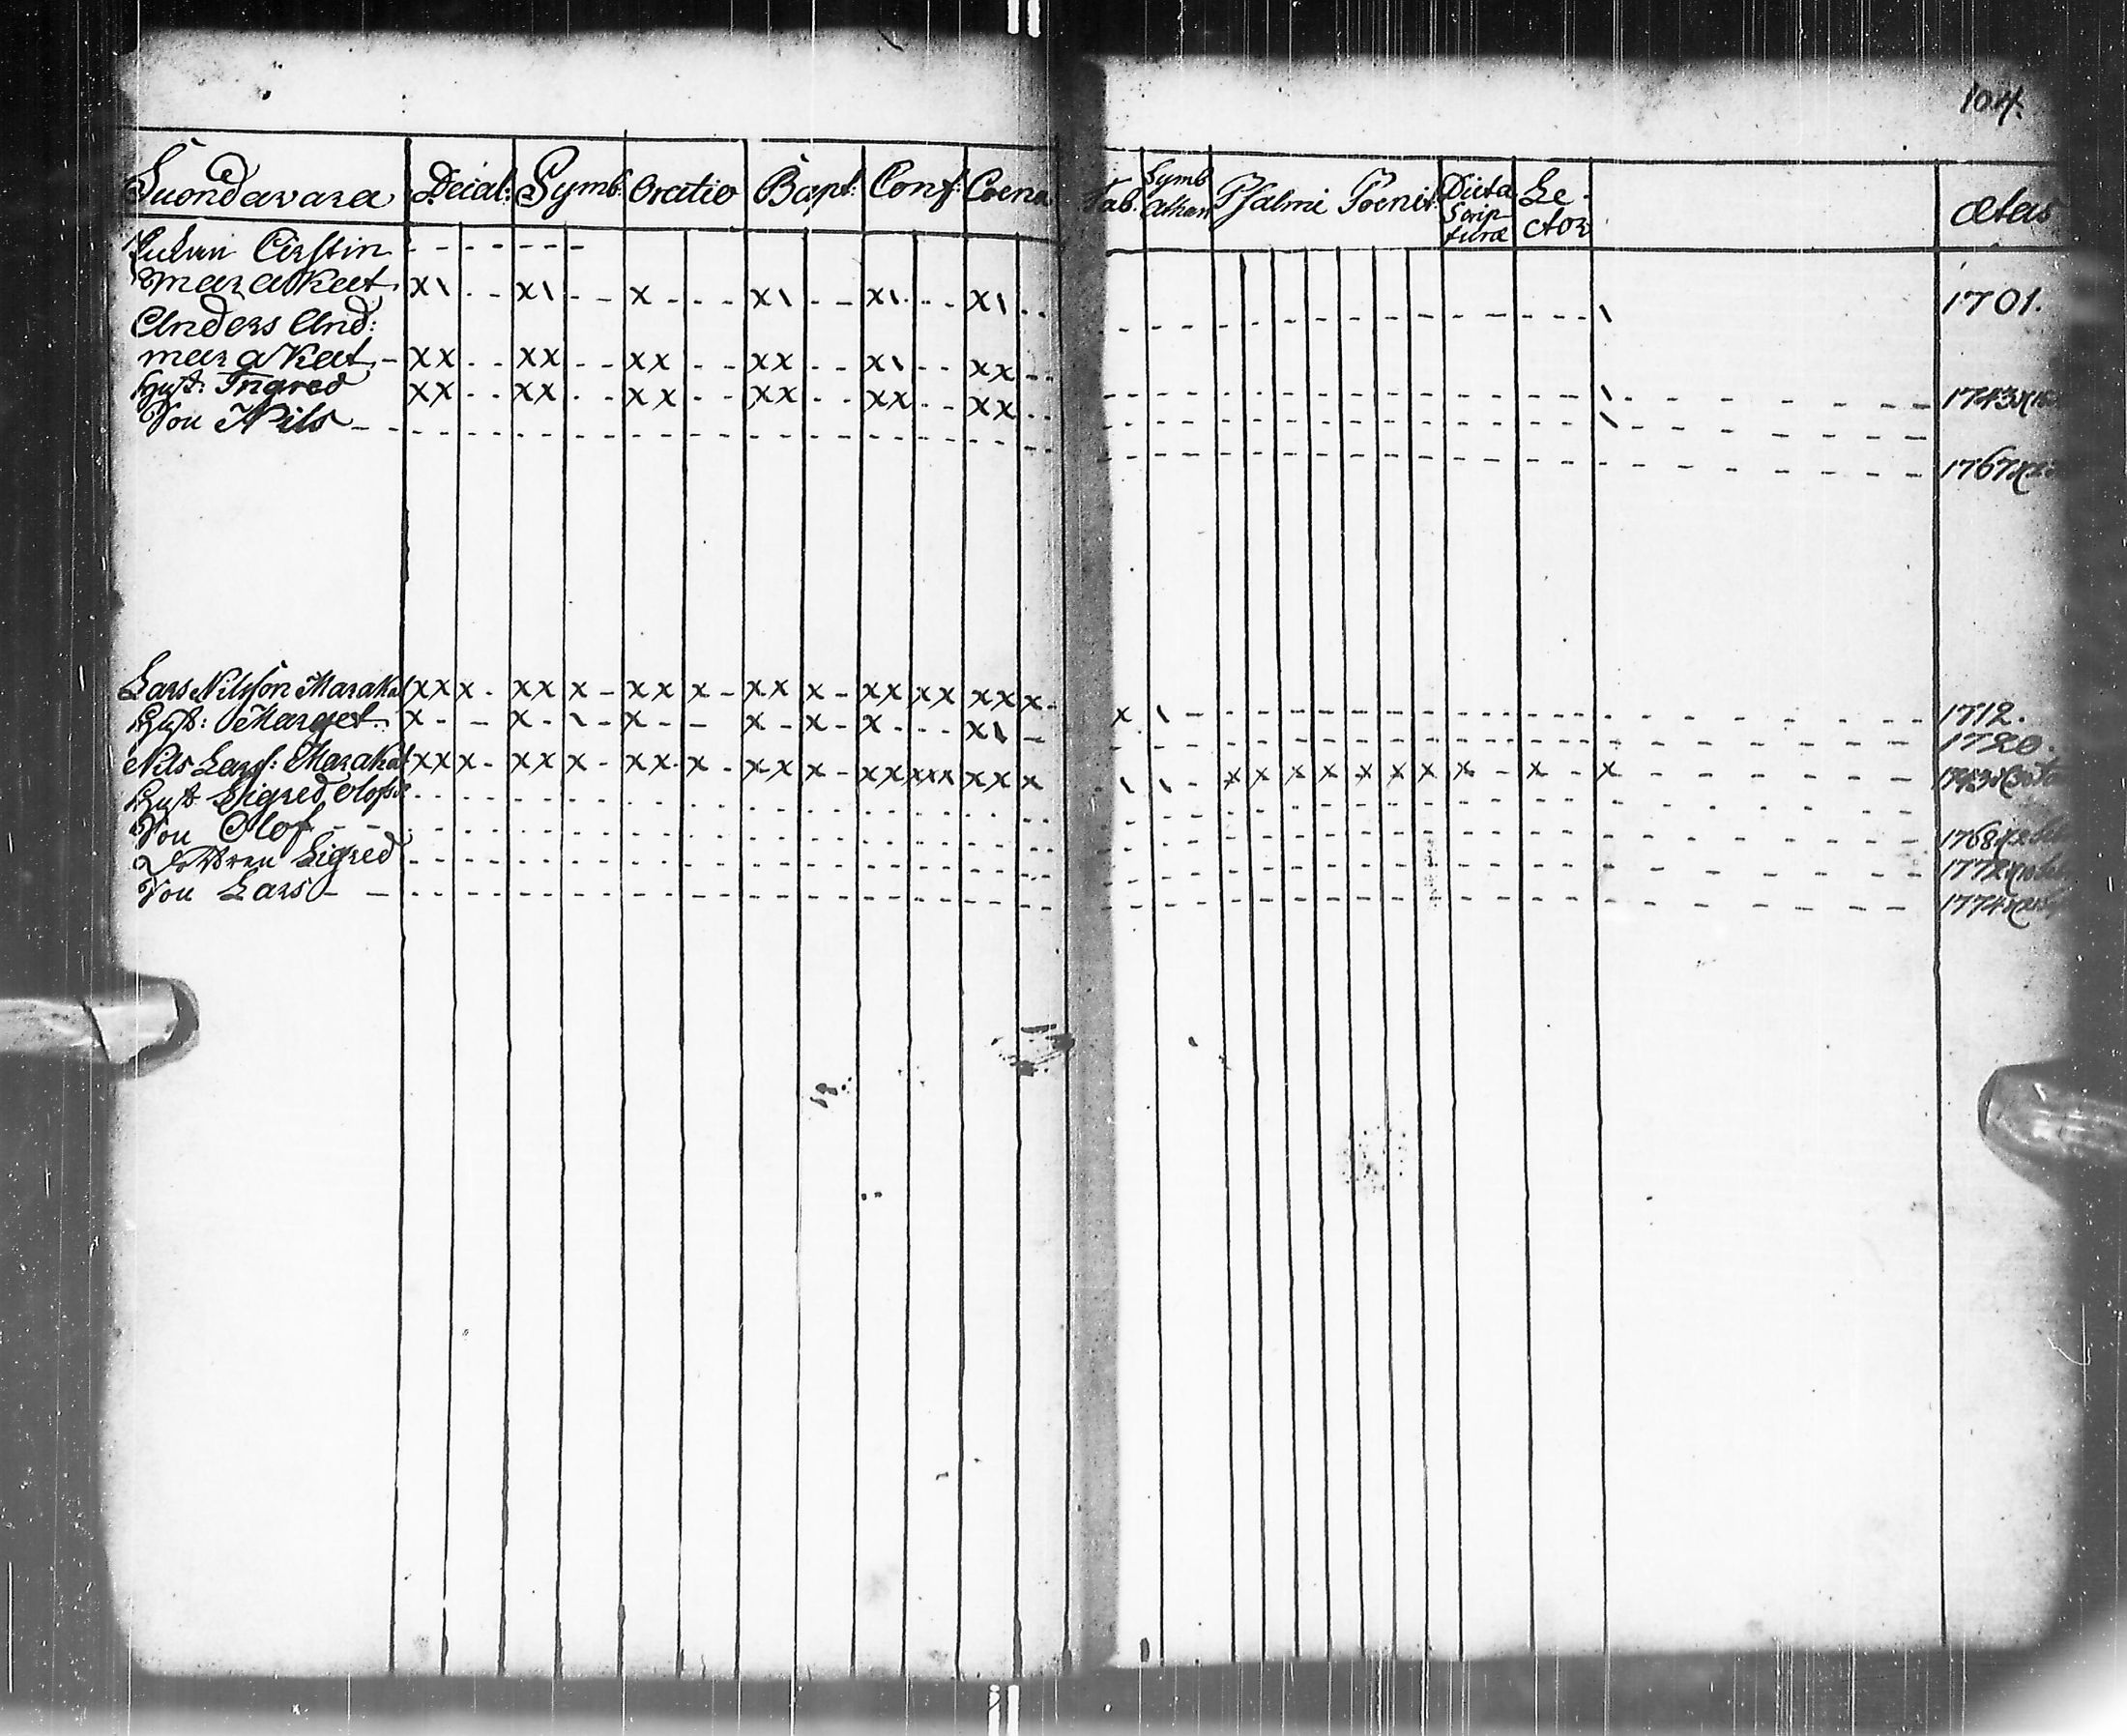 104.
Suondavara Decal: Symb: Oratio Bapt: Conf: Coena Tab. Symb Athan Psalmi Poenit: Dicta Scrip- turæ Le- ctor ætas
Cirstin - - - - - - -
marakat x\ - - x\ - - x - - - x\ - - x\ - - x\ - - 1701.
Anders And:
marakat - xx - - xx - - xx - - xx - - x\ - - xx - -
Hust: Ingred xx - - xx - - xx - - xx - - xx - - xx - - 1743
Son Nils - - 1767
Lars Nilsson Marakat xx x - xx x - xx x - xx x - xx xx xx x - x \ - 1712.
Hust: Marget x - - x - \ - x - - x - x - x - - - x\ - 1720.
Nils Larss: Marakat xx x - xx x - xx x - xx x - xx xxx xx x \ \ - x x x x x x x x - x - x 1743
Hust Sigred Olofs
Son Olof - - 1768
Dottren Sigred 1772
Son Lars - - 1774